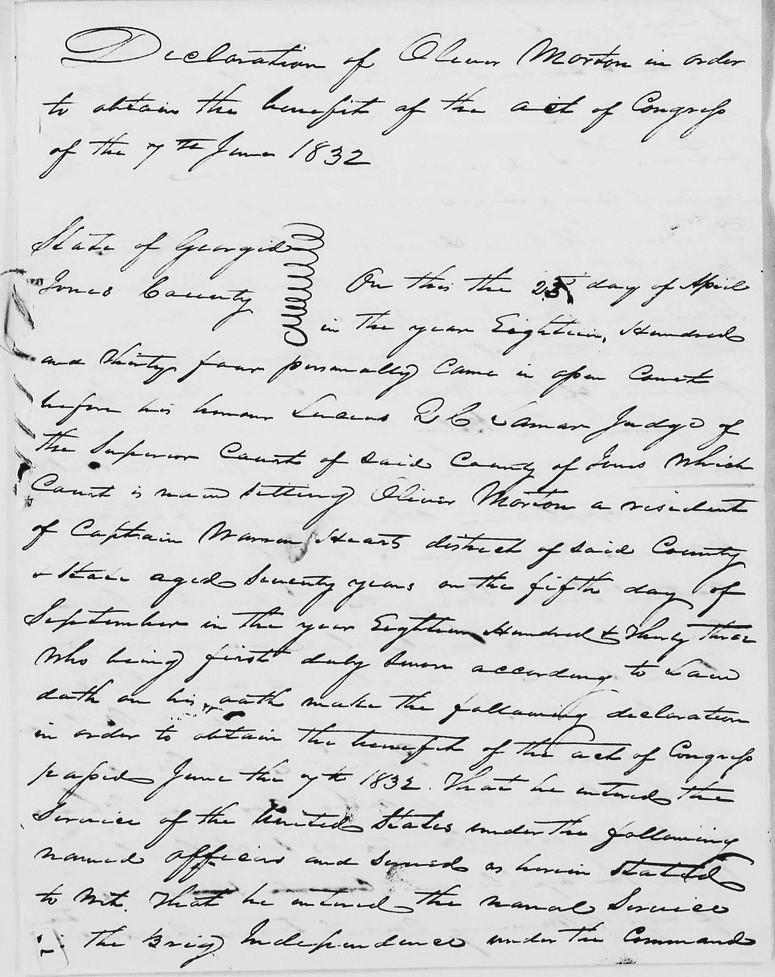 Declaration of Oliver Morton in order
to obtain the benefit of the act of Congress
of the 7th June 1832
State of Georgia
Jones County On this the 25 day of April
in the year Eighteen Hundred
and thirty four personally Came in open Court
before his honour Lucius Q C Lamar Judge of
the Superior Court of said County of Jones which
Court is now sitting Oliver Morton a resident
of Captain Warren district of said County
& State aged Seventy years on the fifth day of
September in the year Eighteen Hundred & Thirty three
who being first duly sworn according to Law
doth on his oath make the following declaration
in order to obtain the benefit of the act of Congress
passed June the 7th 1832. That he entered the
Service of the United States under the following
named officers and served as herein stated
to wit. That he entered the naval Service
in the Brig Independence under the Command